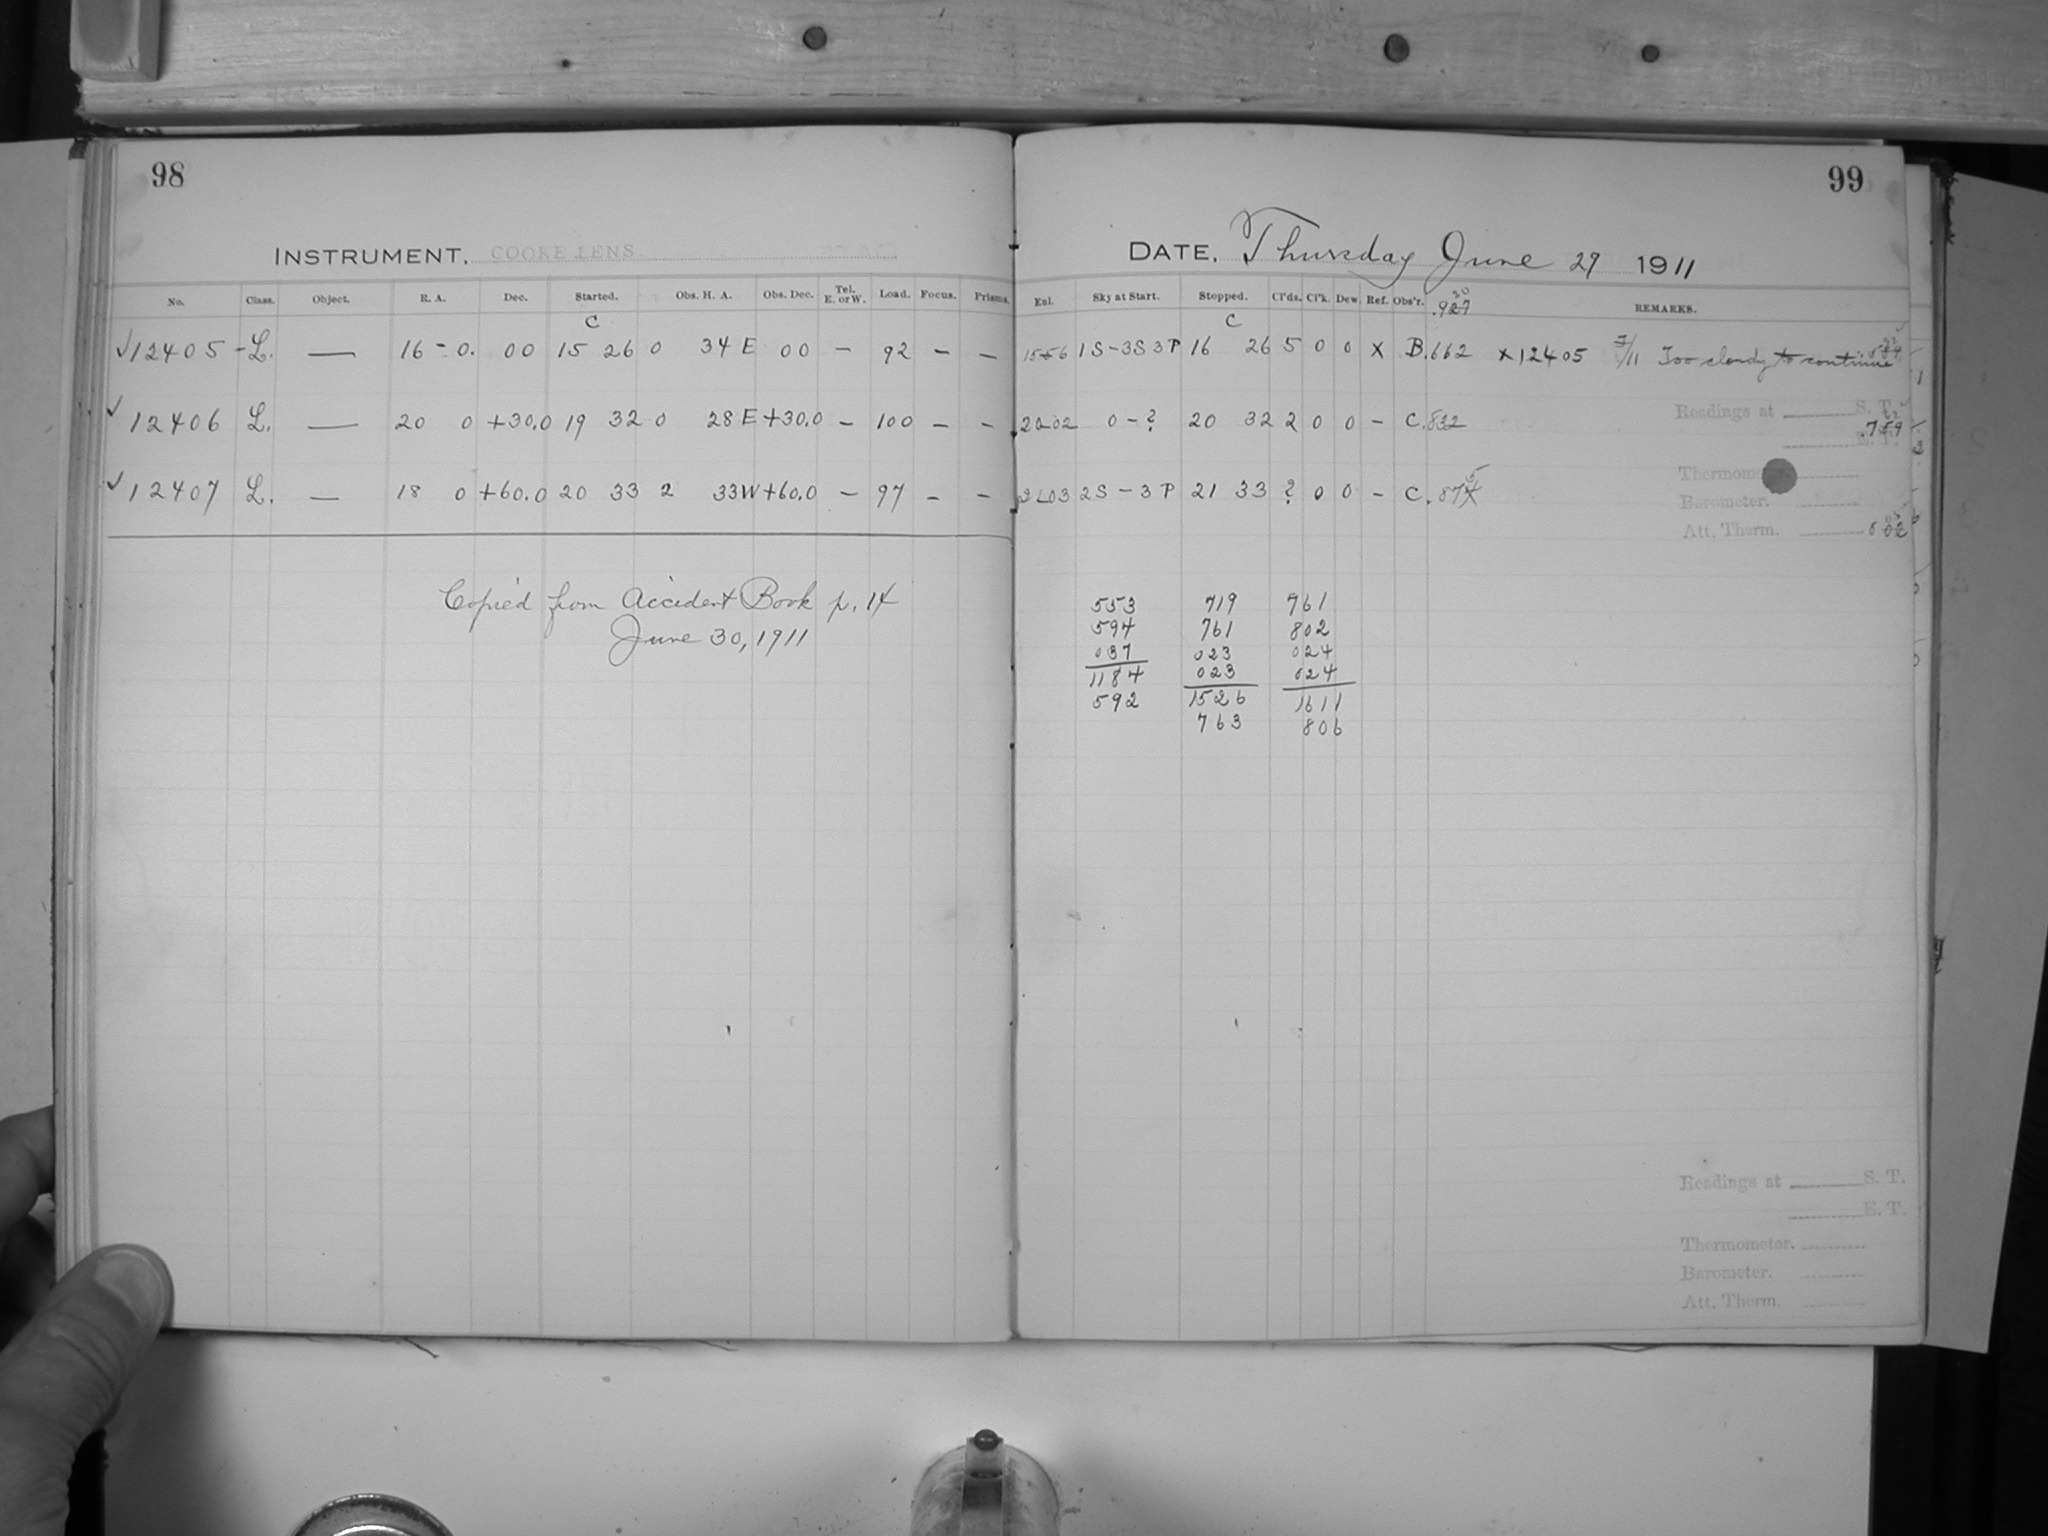 98
99
INSTRUMENT. COOKE LENS.
DATE. Thursday June 29 1911
No. Class. Object. R. A. Dec. Started. Obs. H. A. Obs. Dec. Tel. E. or W. Load. Focus. Prisms. Exl. Sky at Start. Stopped. Cl'ds. Cl'k. Dew. Ref. Obs'r. .927 30 REMARKS.
C C
✓12405 - L. — 16 - 0. 00 15 26 0 34 E 00 - 92 - - 1556 1S-3S 3P 16 26 5 0 0 X B. 662 x12405 7/11 Too cloudy to continue
✓ 12406 L. — 20 0 +30.0 19 32 0 28 E +30.0 - 100 - - 2002 0-? 20 32 2 0 0 - C. 832
Readings at S. T.
.759
✓ 12407 L. — 18 0 +60.0 20 33 2 33 W +60.0 - 97 - - 2103 2S-3P 21 33 ? 0 0 - C. 874 5
Thermometer.
Barometer.
Att. Therm.
Copied from Accident Book p. 14
June 30, 1911
553 719 761
594 761 802
037 023 024
1184 023 024
592 1526 1611
763 806
Readings at S. T.
E. T.
Thermometer.
Barometer.
Att. Therm.